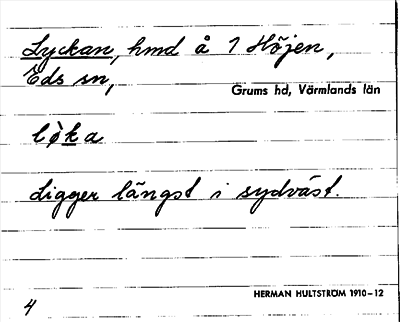 Lyckan, hmd å 1 Höjen,
Eds sn,
Grums hd, Värmlands län
lỳka
Ligger längst i sydväst.
HERMAN HULTSTRÖM 1910–12
4